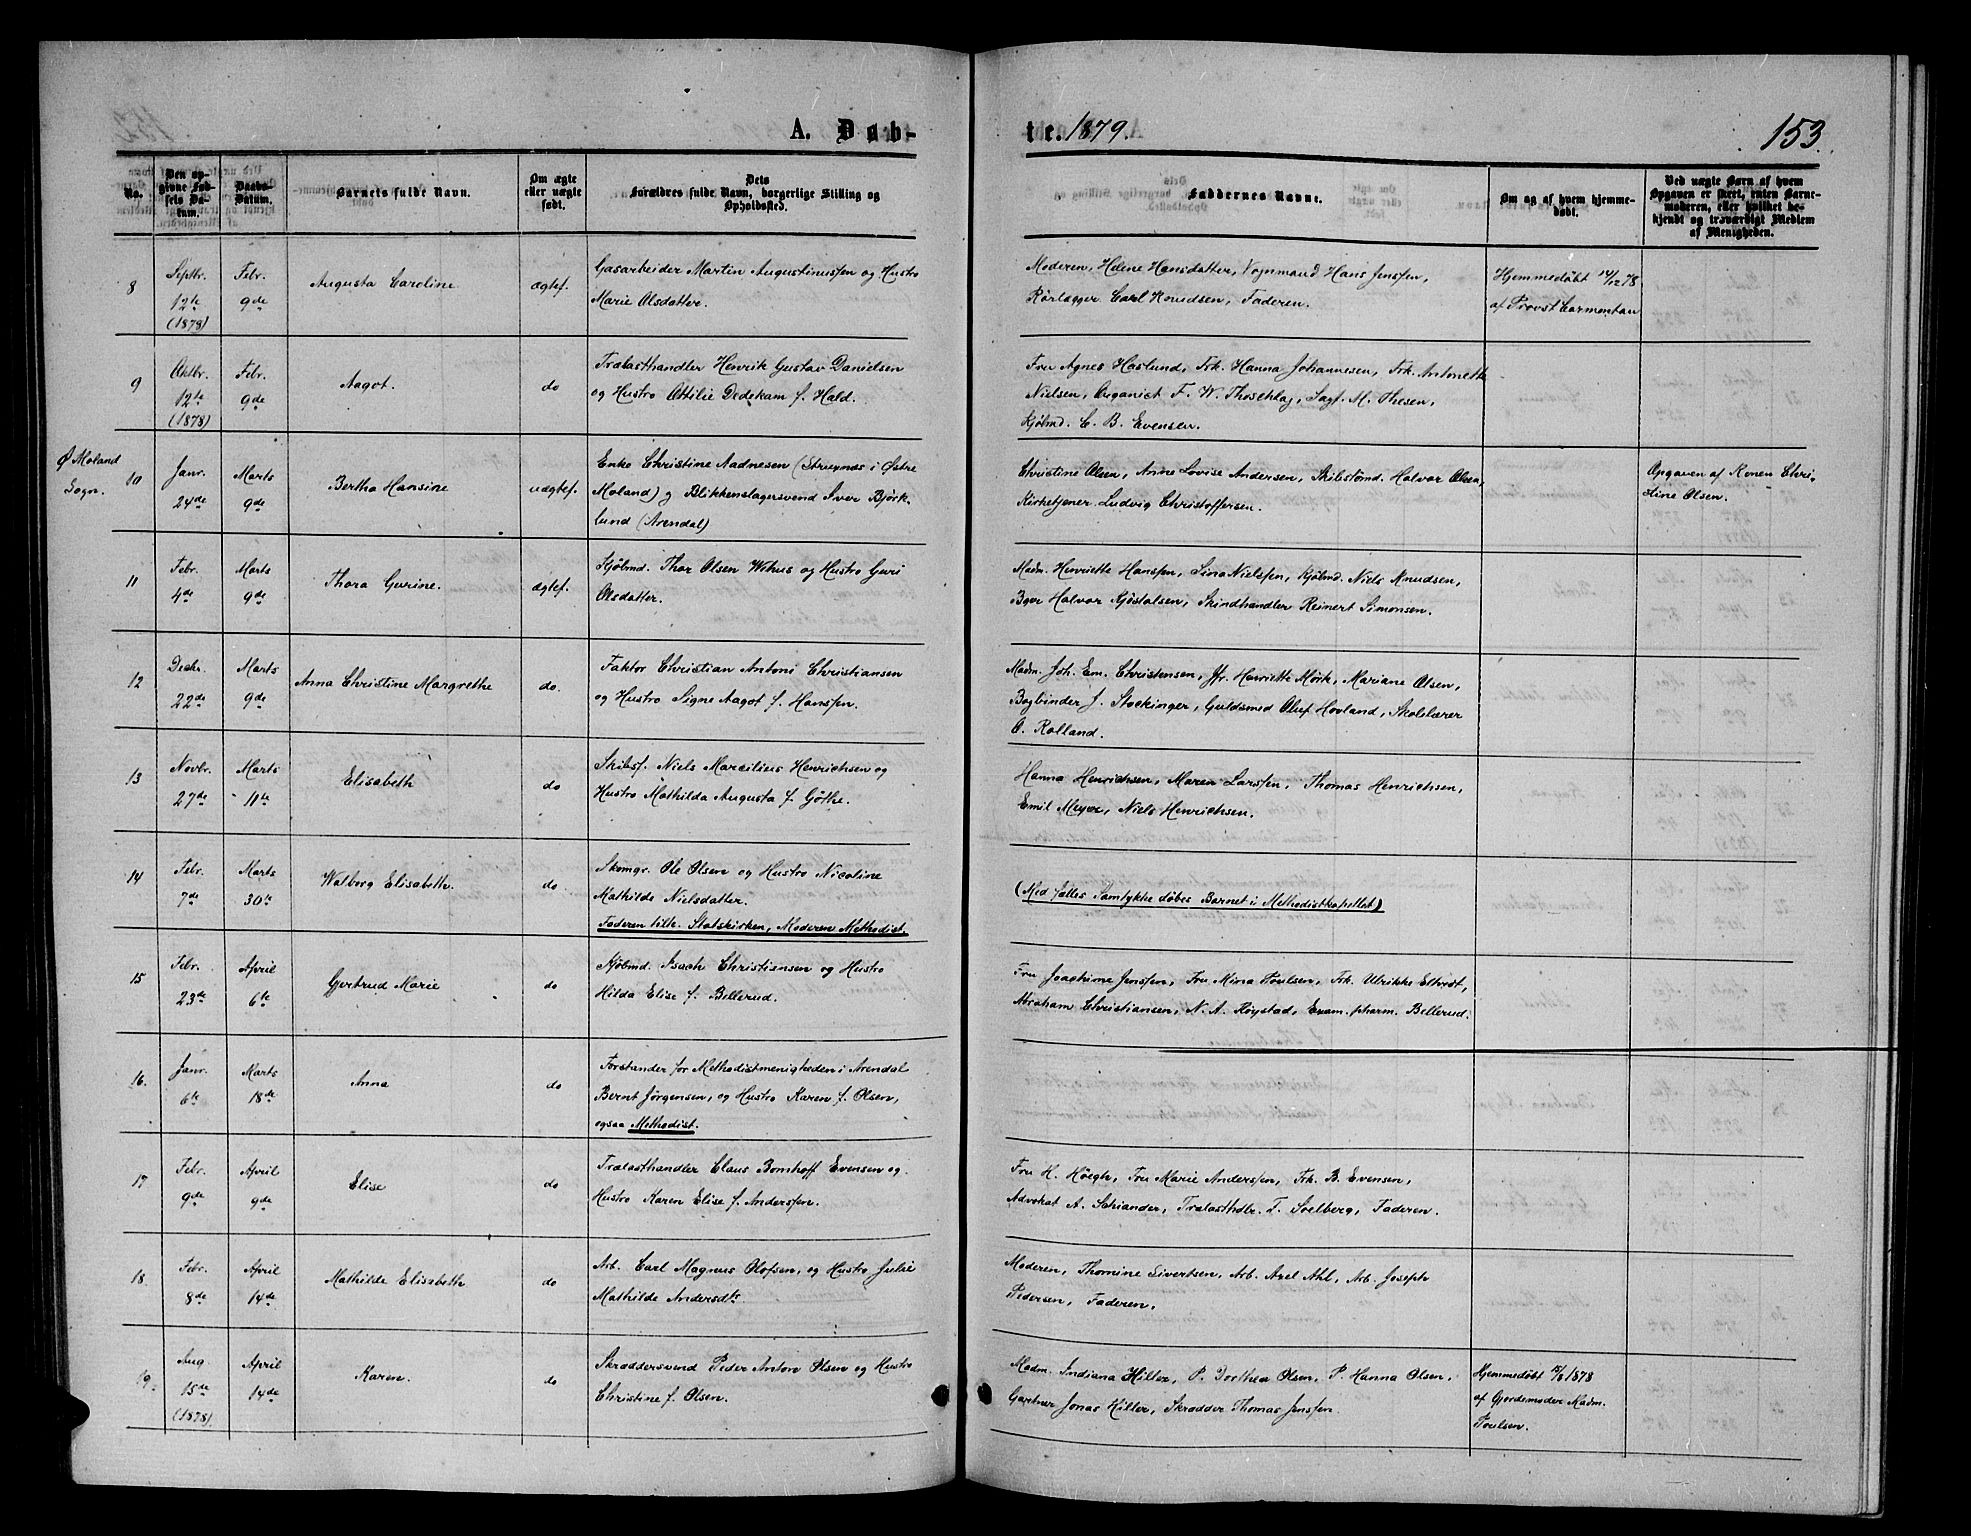 A. Døb-
te. 1879.
153.
No.
Den op-
givne Fød-
sels Da-
tum.
Daabs-
Datum.
Barnets fulde Navn.
Om ægte
eller uægte
født.
Dets
Forældres fulde Navn, borgerlige Stilling og
Opholdssted.
Faddernes Navne.
Om og af hvem hjemme-
døbt.
Ved uægte Børn af hvem
Opgaven er skeet, enten Barne-
moderen, eller hvilket be-
kjendt og troværdigt Medlem
af Menigheden.
8
Septbr.
12te
(1878)
Febr.
9de
Augusta Caroline
ægtef.
Gasarbeider Martin Augustinussen og Hustro
Marie Olsdatter.
Moderen, Helene Hansdatter, Vognmand Hans Jenssen,
Rørlægger Carl Knudsen, Faderen.
Hjemmedøbt 14/12 78
af Provst Carmontau
9
Oktbr.
12te
(1878)
Febr.
9de
Aagot.
do
Trælasthandler Henrik Gustav Danielsen
og Hustro Ottilie Dedekam f. Hald.
Fru Agnes Haslund, Frk. Hanna Johannesen, Frk. Antonette
Nielsen, Organist F. W. Thoschlag, Sagf. M. Thesen,
Kjøbmd. C. B. Evensen.
Ø Moland
Sogn.
10
Janr.
24de
Marts
9de
Bertha Hansine
uægtef.
Enke Christine Aadnesen (Strægnæs i Østre
Moland) og Blikkenslagersvend Iver Bjørk-
lund (Arendal)
Christine Olsen, Anne Lovise Andersen, Skibstømd. Halvor Olsen,
Kirketjener Ludvig Christoffersen.
Opgaven af Konen Chri-
stine Olsen.
11
Febr.
4de
Marts
9de
Thora Gurine.
ægtef.
Kjøbmd. Thor Olsen Wehus og Hustro Guri
Olsdatter.
Madm. Henriette Hanssen, Sina Nielssen, Kjøbmd. Niels Knudsen,
Bgvr Halvor Kjostalsen, Skindhandler Reinert Simonsen.
12
Decbr.
22de
Marts
9de
Anna Christine Margrethe
do.
Faktor Christian Antoni Christiansen
og Hustro Signe Aagot f. Hanssen.
Madm. Joh. Em. Christensen, Jfr. Henriette Mørk, Mariane Olsen,
Bogbinder J. Stockinger, Guldsmed Oluf Hovland, Skolelærer
O. Rolland.
13
Novbr.
27de
Marts
11te
Elisabeth
do
Skibsf. Niels Marcilius Henrichsen og
Hustro Mathilda Augusta f. Gøthe.
Hanna Henrichsen, Maren Larssen, Thomas Henrichsen,
Emil Meyer, Niels Henrichsen.
14
Febr.
7de
Marts
30te
Walborg Elisabeth.
do
Skomgr. Ole Olsen og Hustro Nicoline
Mathilde Nielsdatter.
Faderen tilh. Statskirken, Moderen Methodist.
(Med fælles Samtykke døbes Barnet i Methodistkapellet)
15
Febr.
23de
April
6te
Gjertrud Marie
do
Kjøbmd. Isach Christiansen og Hustro
Hilda Elise f. Bellerud.
Fru Joachime Jenssen, Fru Mina Poulsen, Frk. Ulrikke Eltvedt,
Abraham Christiansen, N. A. Røystad, Exam. pharm. Bellerud.
16.
Janr.
6te
Marts
18de
Anna
do
Forstander for Methodistmenigheden i Arendal
Bernt Jørgensen, og Hustro Karen f. Olsen,
ogsaa Methodist.
17
Febr.
9de
April
9de
Elise
do
Trælasthandler Claus Bomhoff Evensen og
Hustro Karen Elise f. Anderssen.
Fru H. Høegh, Fru Marie Anderssen, Frk. B. Evensen,
Advokat A. Schiander, Trælasthdlr. T. Soelberg, Faderen.
18.
Febr.
8de
April
14de
Mathilde Elisabeth
do
Arb. Carl Magnus Olofsen, og Hustro Julie
Mathilde Andersdtr.
Moderen, Thomine Sivertsen, Arb. Axel Ahl, Arb. Joseph
Pedersen, Faderen.
19.
Aug.
15de
(1878).
April
14de
Karen.
do
Skræddersvend Peder Anton Olsen og Hustro
Christine f. Olsen.
Madm. Indiana Hiller, P. Dorthea Olsen, P. Hanna Olsen.
Gartner Jonas Hiller, Skrædder Thomas Jenssen.
Hjemmedøbt 18/8 1878
af Gjordemoder Madm.
Poulsen.